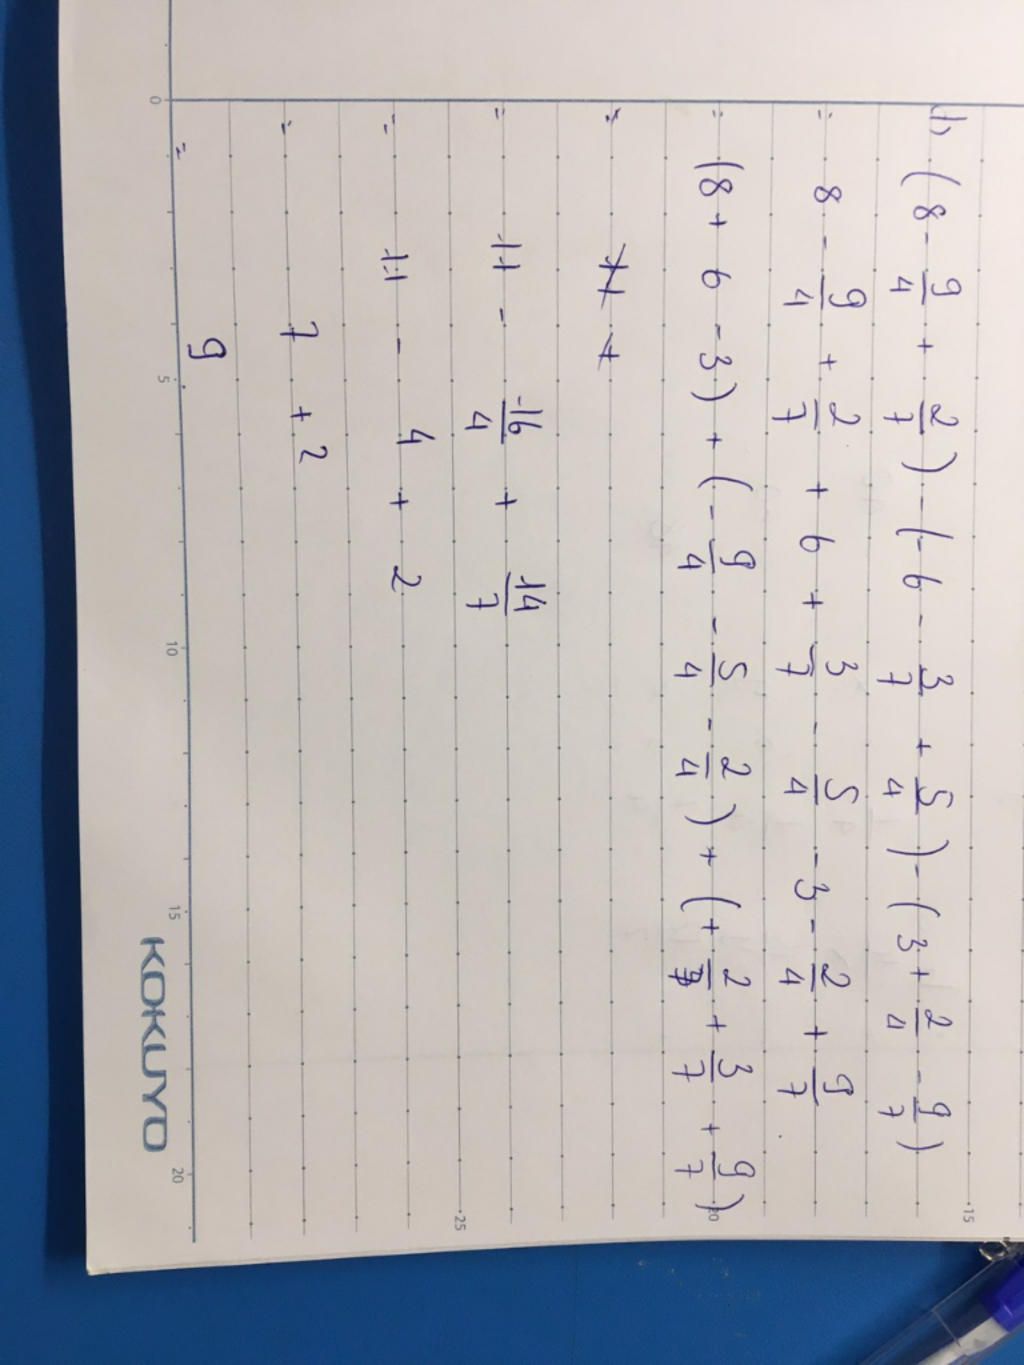 b, (8 - 9/4 + 2/7) - (-6 - 3/7 + 5/4) - (3 + 2/4 - 9/7)
= 8 - 9/4 + 2/7 + 6 + 3/7 - 5/4 - 3 - 2/4 + 9/7
= (8 + 6 - 3) + (- 9/4 - 5/4 - 2/4) + (+ 2/7 + 3/7 + 9/7)
=
= 11 - -16/4 + 14/7
= 11 - 4 + 2
= 7 + 2
= 9
0 5 10 15 20
15
20
25
KOKUYO